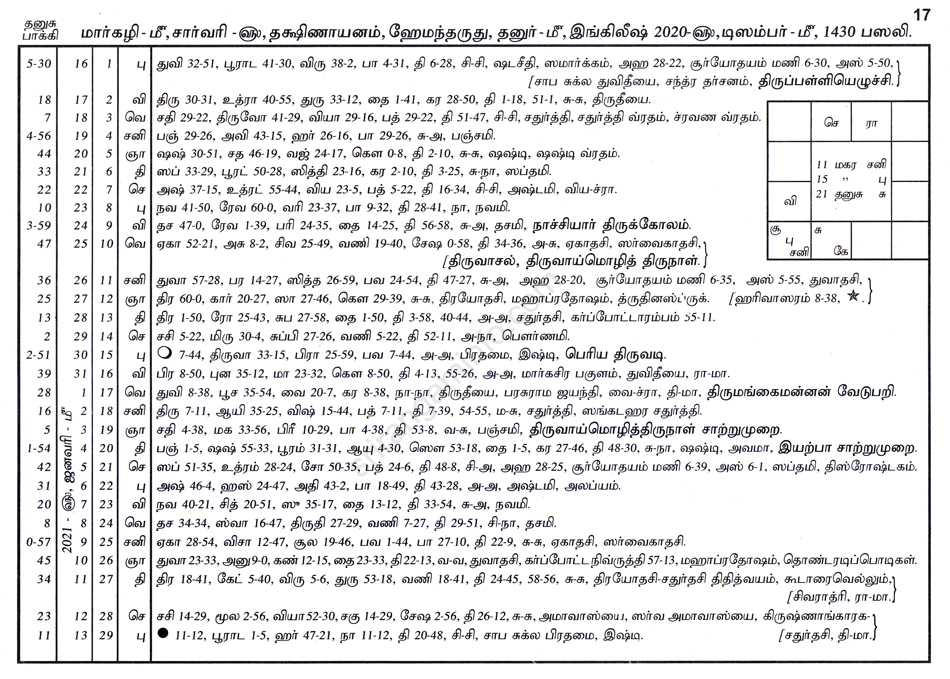 17
தனுசு
பாக்கி
மார்கழி - மீ, சார்வரி - ௵, தக்ஷிணாயனம், ஹேமந்தருது, தனுர் - மீ, இங்கிலீஷ் 2020-௵, டிஸம்பர் - மீ, 1430 பஸலி.
5-30 16 1 பு துவி 32-51, பூராட 41-30, விரு 38-2, பா 4-31, தி 6-28, சி-சி, ஷடசீதி, ஸமார்க்கம், அஹ 28-22, சூர்யோதயம் மணி 6-30, அஸ் 5-50,
[சாப சுக்ல துவிதீயை, சந்த்ர தர்சனம், திருப்பள்ளியெழுச்சி.
18 17 2 வி திரு 30-31, உத்ரா 40-55, துரு 33-12, தை 1-41, கர 28-50, தி 1-18, 51-1, சு-சு, திருதீயை.
7 18 3 வெ சதி 29-22, திருவோ 41-29, வியா 29-16, பத் 29-22, தி 51-47, சி-சி, சதுர்த்தி, சதுர்த்தி வ்ரதம், ச்ரவண வ்ரதம்.
4-56 19 4 சனி பஞ் 29-26, அவி 43-15, ஹர் 26-16, பா 29-26, சு-அ, பஞ்சமி.
44 20 5 ஞா ஷஷ் 30-51, சத 46-19, வஜ் 24-17, கௌ 0-8, தி 2-10, சு-சு, ஷஷ்டி, ஷஷ்டி வ்ரதம்.
33 21 6 தி ஸப் 33-29, பூரட் 50-28, ஸித்தி 23-16, கர 2-10, தி 3-25, சு-நா, ஸப்தமி.
22 22 7 செ அஷ் 37-15, உத்ரட் 55-44, விய 23-5, பத் 5-22, தி 16-34, சி-சி, அஷ்டமி, விய-ச்ரா.
10 23 8 பு நவ 41-50, ரேவ 60-0, வரி 23-37, பா 9-32, தி 28-41, நா, நவமி.
3-59 24 9 வி தச 47-0, ரேவ 1-39, பரி 24-35, தை 14-25, தி 56-58, சு-அ, தசமி, நாச்சியார் திருக்கோலம்.
47 25 10 வெ ஏகா 52-21, அசு 8-2, சிவ 25-49, வணி 19-40, சேஷ 0-58, தி 34-36, அ-சு, ஏகாதசி, ஸர்வைகாதசி,
[திருவாசல், திருவாய்மொழித் திருநாள்.
செ ரா
11 மகர சனி
15 ,, பு
21 தனுசு சு
வி
சூ
பு
சனி
சு
கே
36 26 11 சனி துவா 57-28, பர 14-27, ஸித்த 26-59, பவ 24-54, தி 47-27, சு-அ, அஹ 28-20, சூர்யோதயம் மணி 6-35, அஸ் 5-55, துவாதசி,
25 27 12 ஞா திர 60-0, கார் 20-27, ஸா 27-46, கௌ 29-39, சு-சு, திரயோதசி, மஹாப்ரதோஷம், த்ருதினஸ்ப்ருக். [ஹரிவாஸரம் 8-38, ★.
13 28 13 தி திர 1-50, ரோ 25-43, சுப 27-58, தை 1-50, தி 3-58, 40-44, அ-அ, சதுர்த்தி, கர்ப்போட்டாரம்பம் 55-11.
2 29 14 செ சசி 5-22, மிரு 30-4, சுப்பி 27-26, வணி 5-22, தி 52-11, அ-நா, பௌர்ணமி.
2-51 30 15 பு ○ 7-44, திருவா 33-15, பிரா 25-59, பவ 7-44, அ-அ, பிரதமை, இஷ்டி, பெரிய திருவடி.
39 31 16 வி பிர 8-50, புன 35-12, மா 23-32, கௌ 8-50, தி 4-13, 55-26, அ-அ, மார்கசிர பகுளம், துவிதீயை, ரா-மா.
28 1 17 வெ துவி 8-38, பூச 35-54, வை 20-7, கர 8-38, நா-நா, திருதீயை, பரசுராம ஜயந்தி, வை-ச்ரா, தி-மா, திருமங்கைமன்னன் வேடுபறி.
16 2 18 சனி திரு 7-11, ஆயி 35-25, விஷ் 15-44, பத் 7-11, தி 7-39, 54-55, ம-சு, சதுர்த்தி, ஸங்கடஹர சதுர்த்தி.
5 3 19 ஞா சதி 4-38, மக 33-56, பிரீ 10-29, பா 4-38, தி 53-8, வ-சு, பஞ்சமி, திருவாய்மொழித்திருநாள் சாற்றுமுறை.
1-54 4 20 தி பஞ் 1-5, ஷஷ் 55-33, பூரம் 31-31, ஆயு 4-30, ஸௌ 53-18, தை 1-5, கர 27-46, தி 48-30, சு-நா, ஷஷ்டி, அவமா, இயற்பா சாற்றுமுறை.
42 5 21 செ ஸப் 51-35, உத்ரம் 28-24, சோ 50-35, பத் 24-6, தி 48-8, சி-அ, அஹ 28-25, சூர்யோதயம் மணி 6-39, அஸ் 6-1, ஸப்தமி, திஸ்ரோஷ்டகம்.
31 6 22 பு அஷ் 46-4, ஹஸ் 24-47, அதி 43-2, பா 18-49, தி 43-28, அ-அ, அஷ்டமி, அலப்யம்.
20 7 23 வி நவ 40-21, சித் 20-51, ஸு 35-17, தை 13-12, தி 33-54, சு-அ, நவமி.
8 8 24 வெ தச 34-34, ஸ்வா 16-47, திருதி 27-29, வணி 7-27, தி 29-51, சி-நா, தசமி.
0-57 9 25 சனி ஏகா 28-54, விசா 12-47, சூல 19-46, பவ 1-44, பா 27-10, தி 22-9, சு-சு, ஏகாதசி, ஸர்வைகாதசி.
45 10 26 ஞா துவா 23-33, அனு 9-0, கண் 12-15, தை 23-33, தி 22-13, வ-வ, துவாதசி, கர்ப்போட்ட நிவ்ருத்தி 57-13, மஹாப்ரதோஷம், தொண்டரடிப்பொடிகள்.
34 11 27 தி திர 18-41, கேட் 5-40, விரு 5-6, துரு 53-18, வணி 18-41, தி 24-45, 58-56, சு-சு, திரயோதசி-சதுர்தசி திதித்வயம், கூடாரைவெல்லும்,
[சிவராத்ரி, ரா-மா.
23 12 28 செ சசி 14-29, மூல 2-56, வியா 52-30, சகு 14-29, சேஷ 2-56, தி 26-12, சு-சு, அமாவாஸ்யை, ஸர்வ அமாவாஸ்யை, கிருஷ்ணாங்காரக-
11 13 29 பு ● 11-12, பூராட 1-5, ஹர் 47-21, நா 11-12, தி 20-48, சி-சி, சாப சுக்ல பிரதமை, இஷ்டி. [சதுர்தசி, தி-மா.
2021 - ௵, ஜனவரி - மீ
srirangaminfo.com